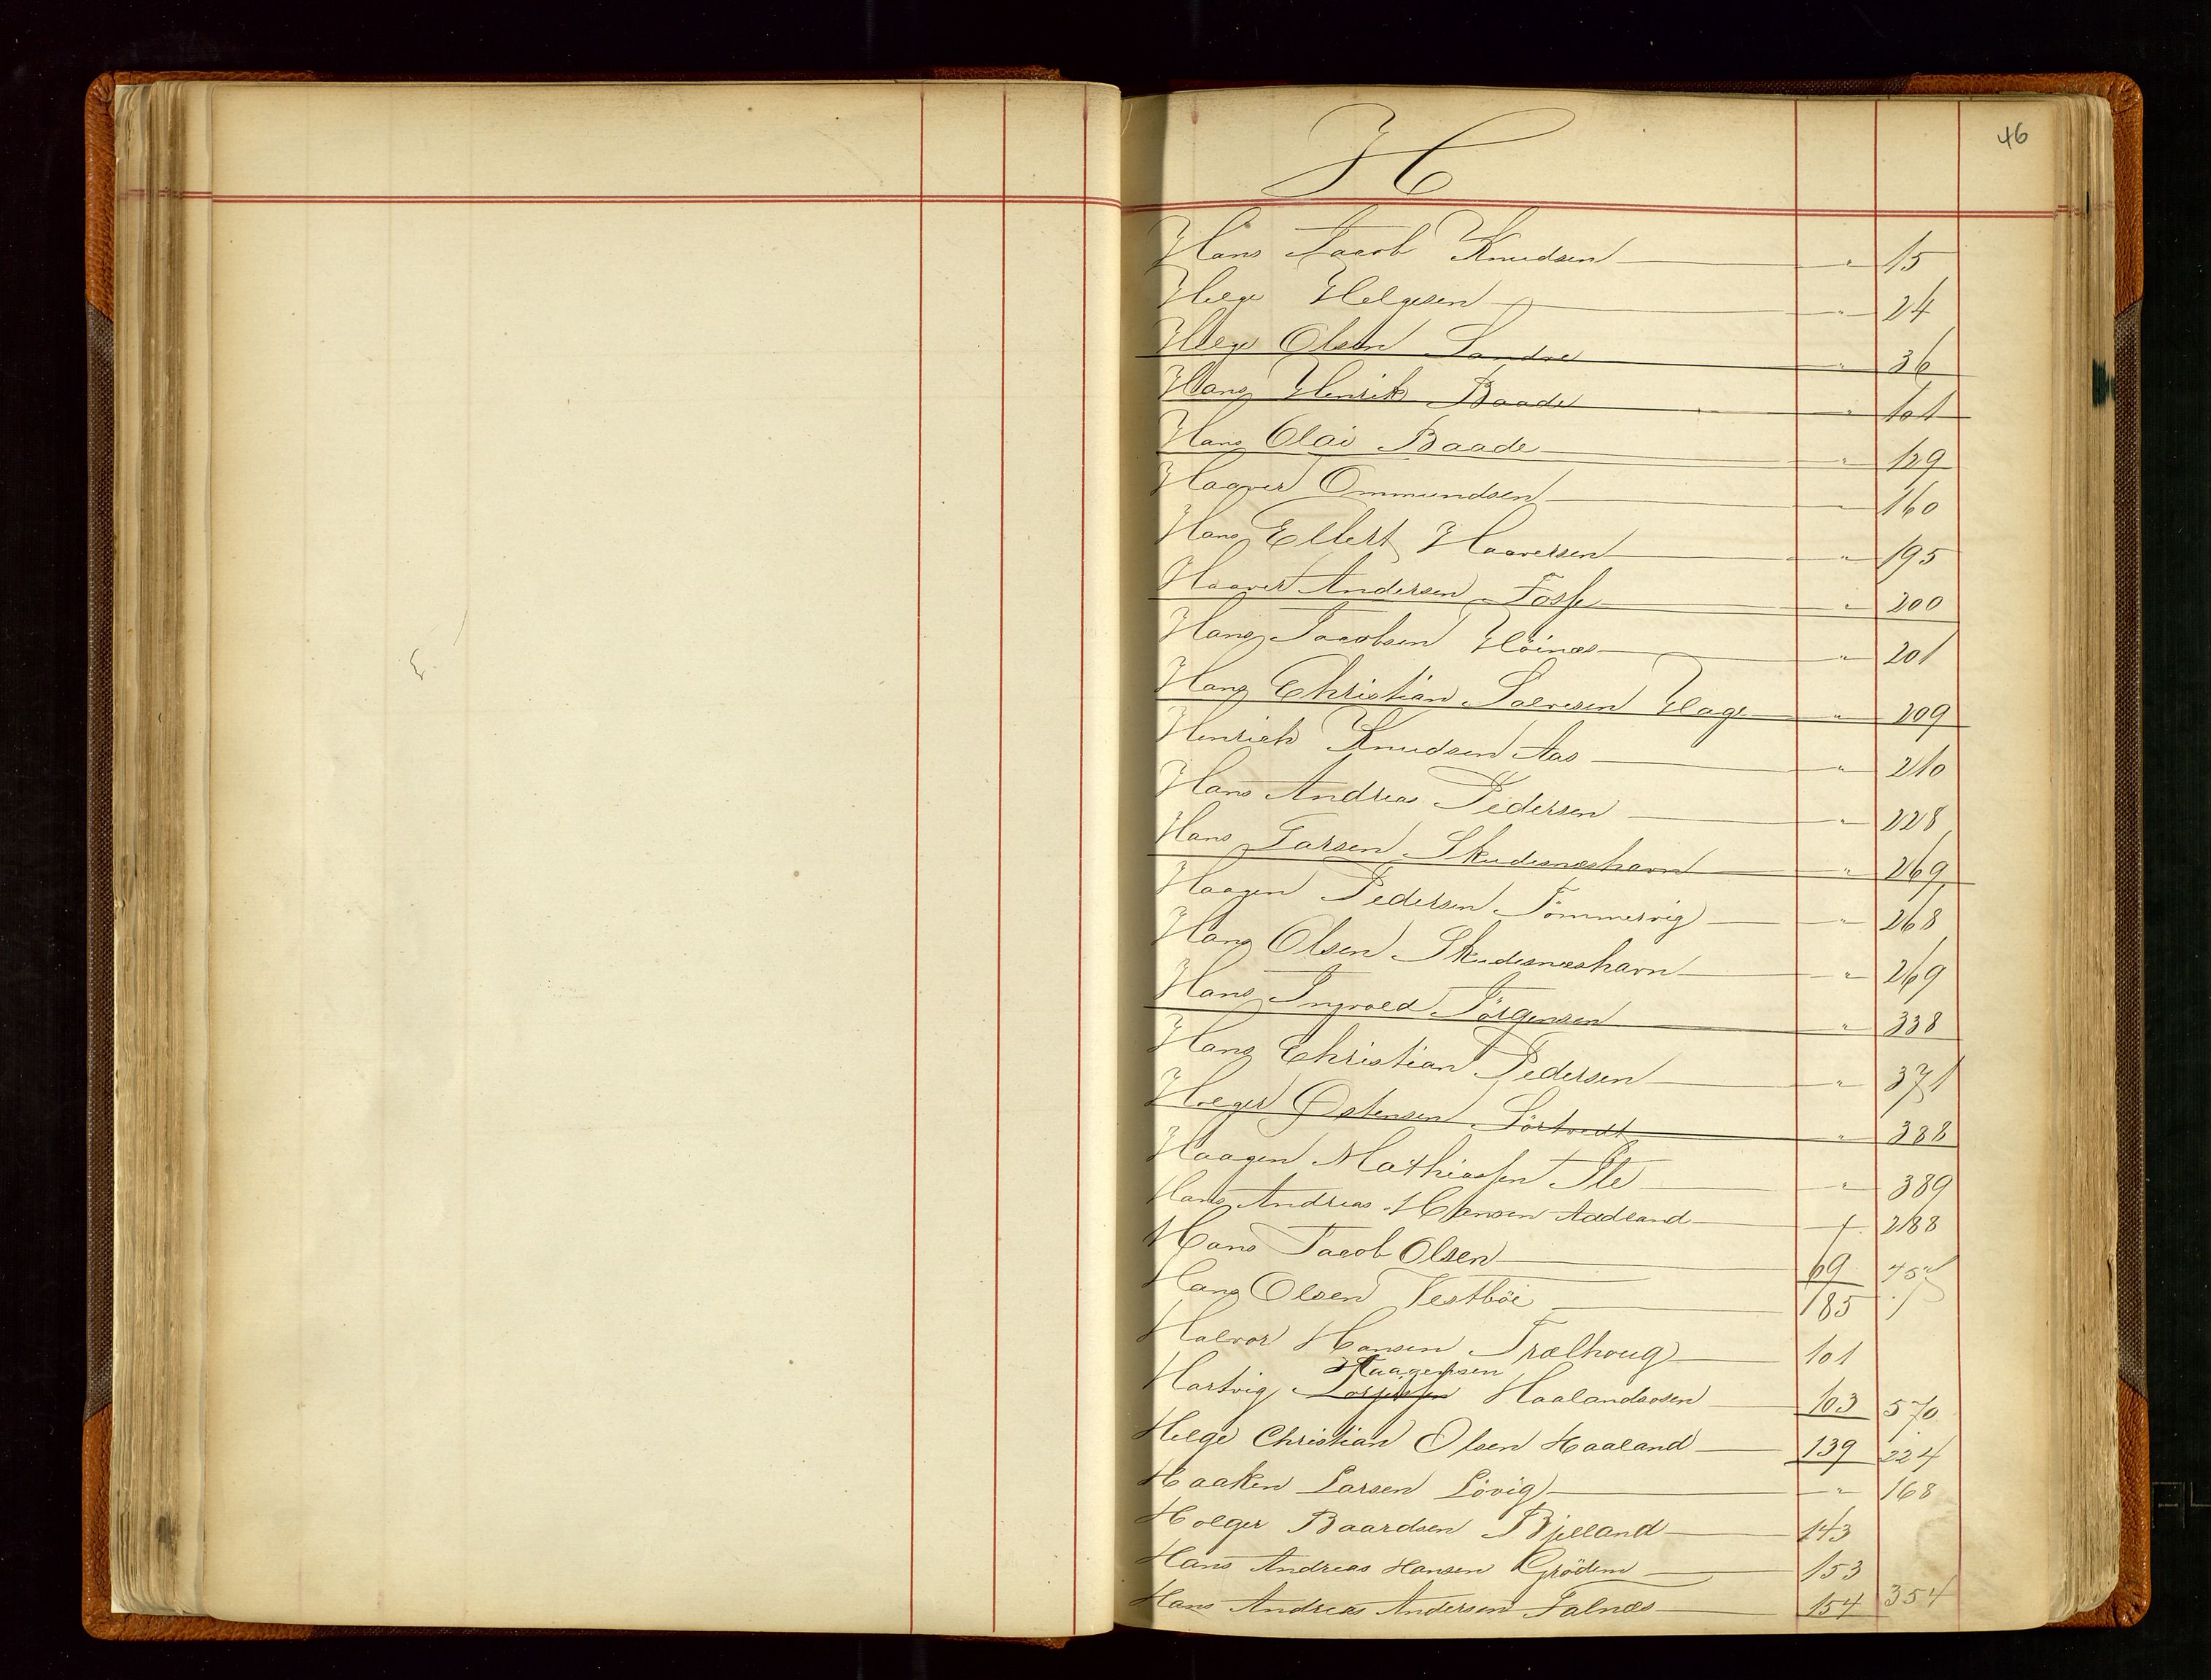 46
H
Hans Jacob Knudsen — " — 15
Helge Helgesen — " — 24
Helge Olsen Sandve — " — 36
Hans Henrik Baade — " — 101
Hans Olai Baade — " — 129
Haaver Ommundsen — " — 160
Hans Ellert Haaversen — " — 195
Haaver Andersen Fosse — " — 200
Hans Jacobsen Höinæs — " — 201
Hans Christian Salvesen Hage — " — 209
Henrich Knudsen Aas — " — 210
Hans Andreas Pedersen — " — 228
Hans Larsen Skudesnæshavn — " — 269
Haagen Pedersen Tömmervig — " — 268
Hans Olsen Skudesnæshavn — " — 269
Hans Ingvald Jörgensen — " — 338
Hans Christian Pedersen — " — 371
Holger Östensen Sörtvedt — " — 388
Haagen Mathiassen Ste — " — 389
Hans Andreas Hansen Aadland — " — 288
Hans Jacob Olsen — 69
Hans Olsen Vestböe — 185
Halvor Hansen Trælhoug — 101
Haagensen
Hartvig Haalandsosen — 103 570
Helge Christian Olsen Haaland — 139 224
Haaken Larsen Lövig — " — 168
Holger Baardsen Bjelland — 143
Hans Andreas Hansen Grödem — 153
Hans Andreas Andersen Falnæs — 154 354